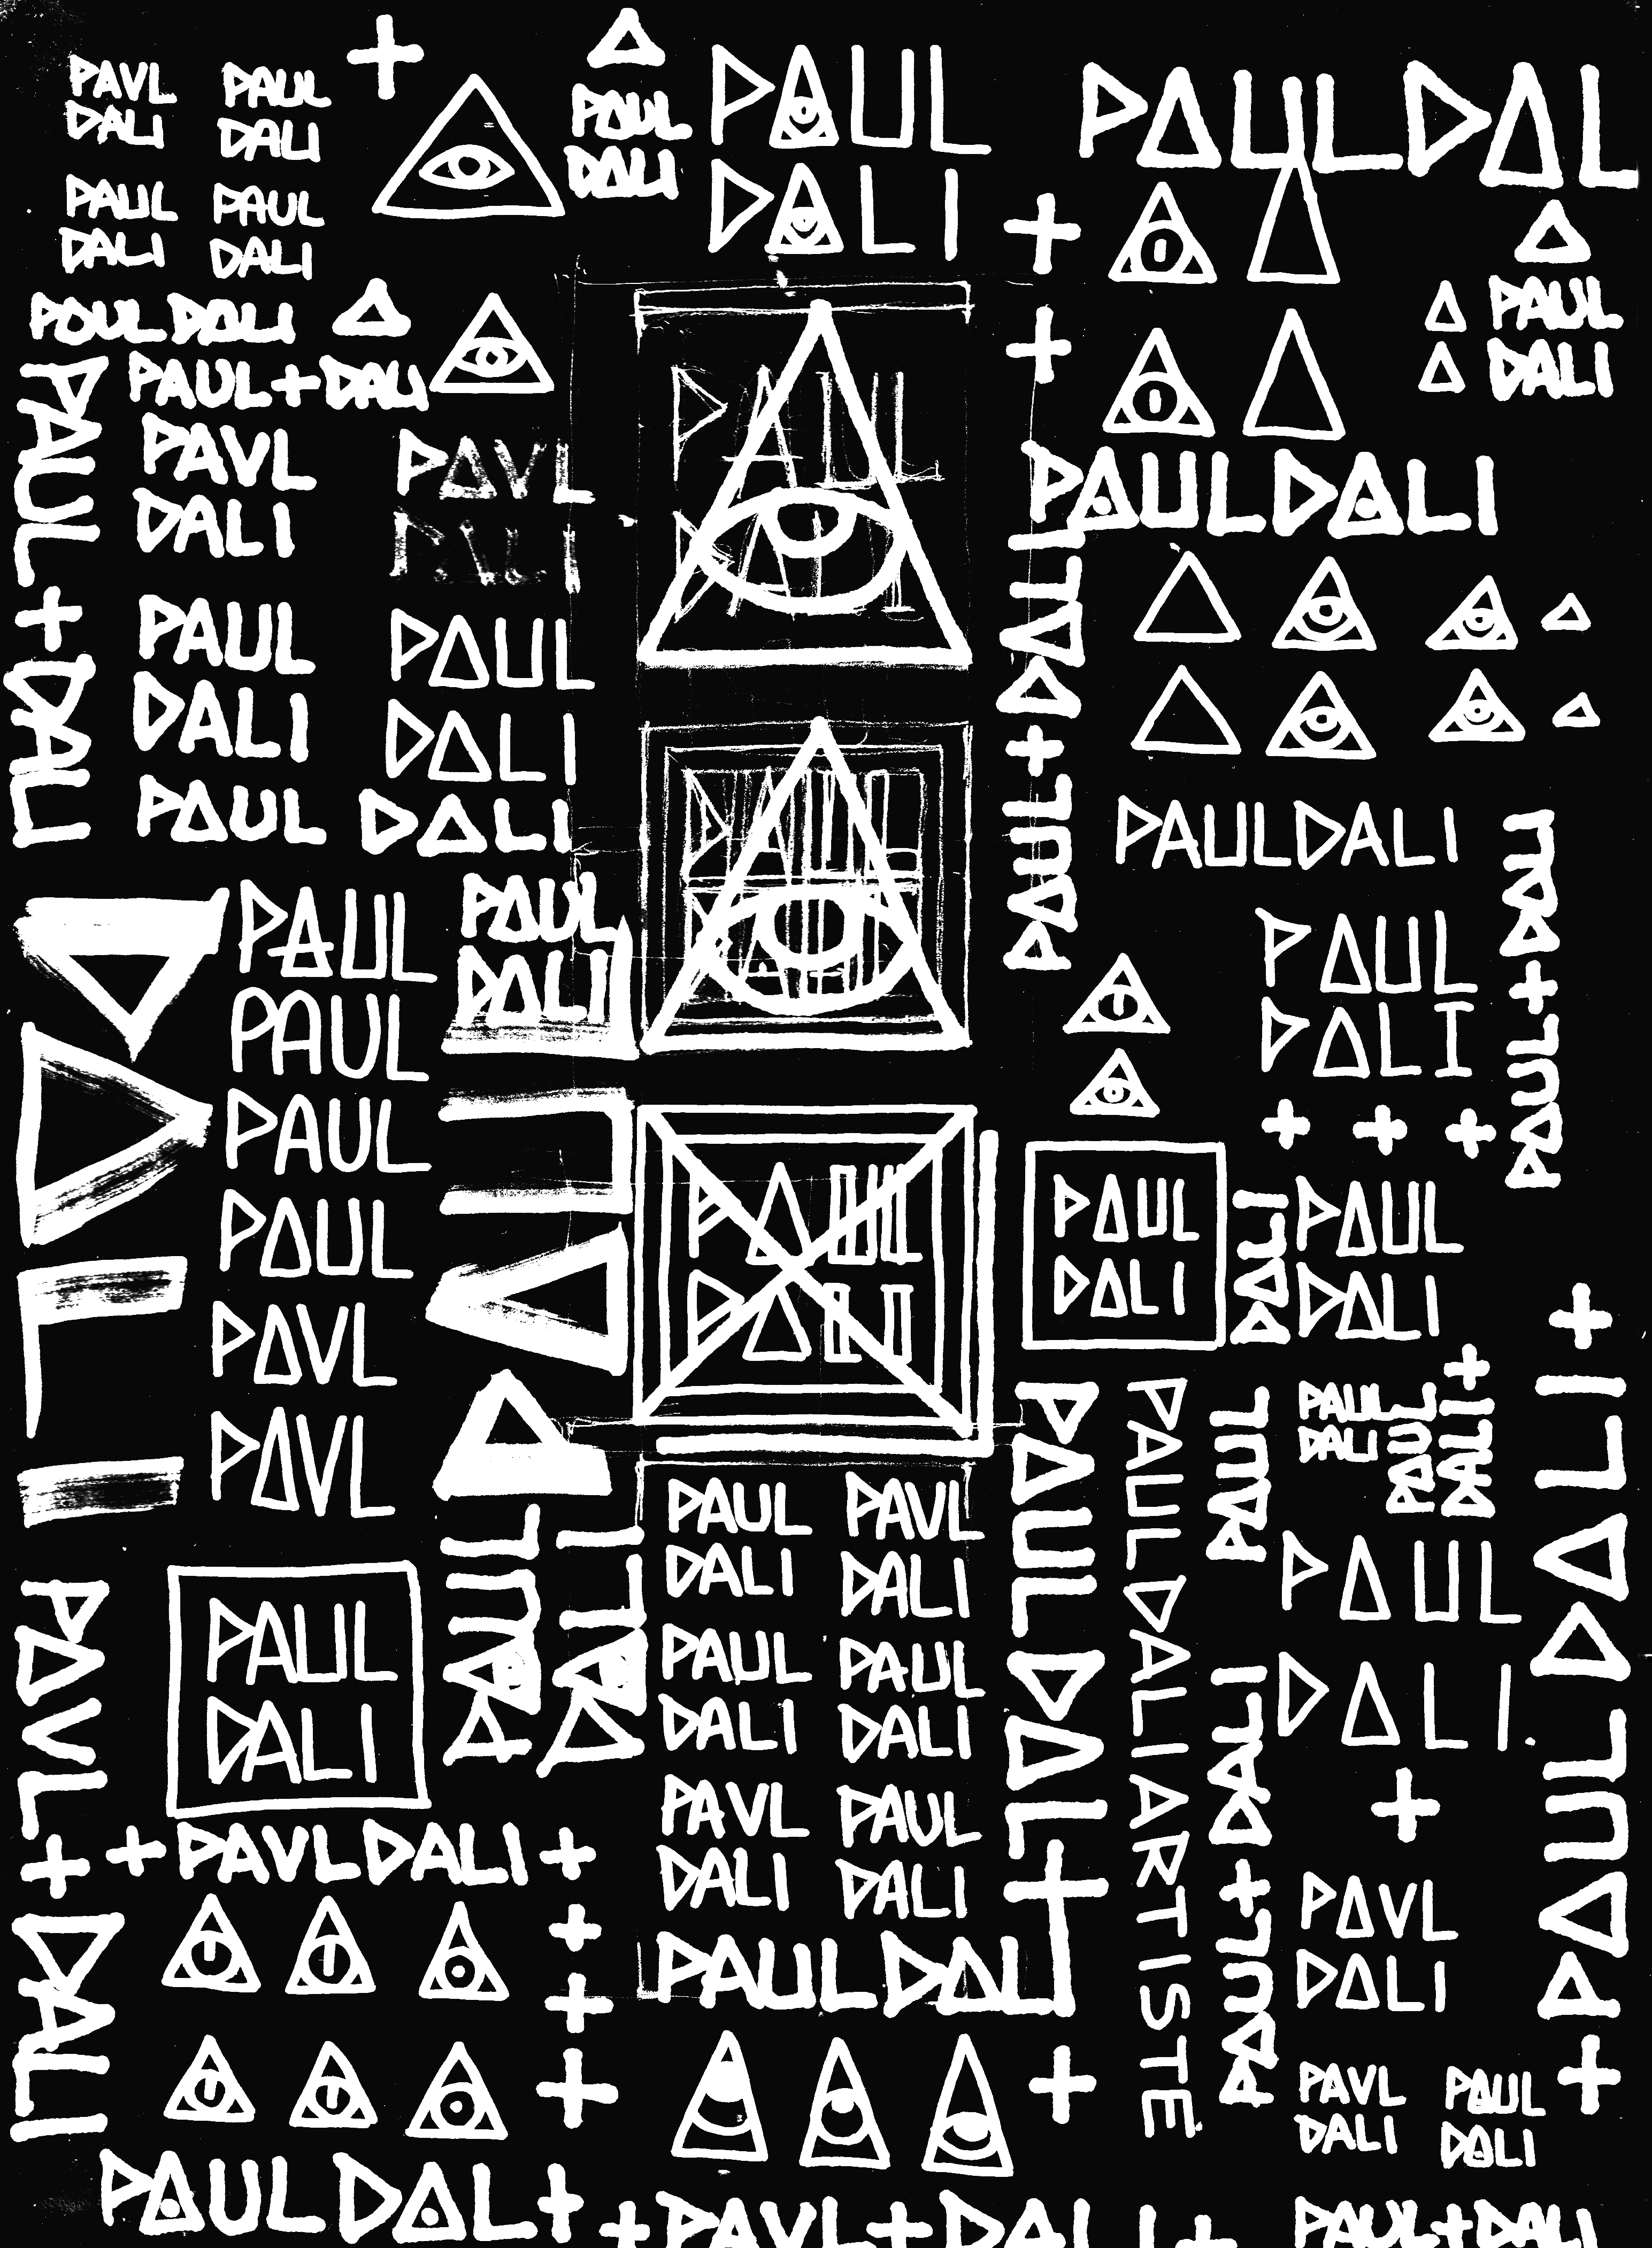 PAVL
DALI
PAUL
DALI
PAUL
DALI
PAUL
DALI
PAUL
DALI
PAUL
DALI
PAULDAL
PAUL
DALI
PAULDALI
PAUL+DALI
PAUL+DALI
PAVL
DALI
PAVL
DALI
PAUL
DALI
PAULDALI
PAUL+DALI
PAUL
DALI
PAUL
DALI
PAUL DALI
PAULDALI
PAUL+DALI
PAUL
DALI
PAUL
PAUL
PAUL
PAUL
PAVL
PAVL
DALI
PAUL
DALI
PAUL
PAUL
DALI
PAUL
DALI
PAUL
DALI
PAUL+DALI
PAUL
DALI
DALI
PAUL
DALI
PAUL
DALI
PAVL+DALI
PAUL
DALI
+PAVLDALI+
PAUL
DALI
PAUL
DALI
PAVL
DALI
PAUL
DALI
PAUL
DALI
PAVL
DALI
PAUL
DALI
PAULDALI
PAULDALI+
PAULDALIARTISTE
PAUL
PAUL
DALI
PAUL
DALI+
PAUL
DALI.
+
PAUL+DALI
PAVL
DALI
PAVL
DALI
PAUL
DALI
+PAULDALI+
PAULDAL+
+PAVL+DALI+
PAUL+DALI